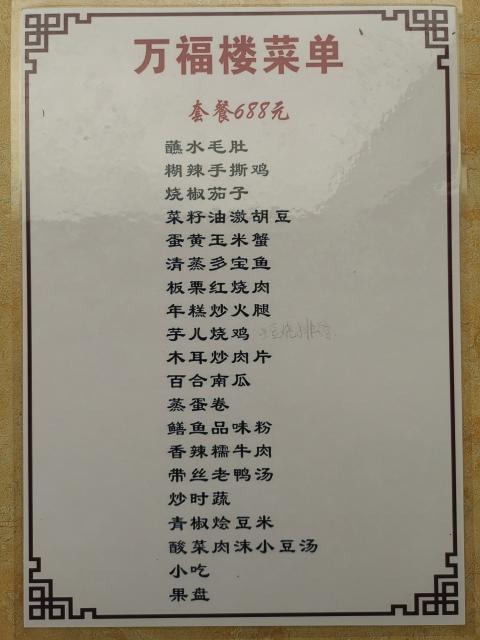 万福楼菜单
套餐688元
蘸水毛肚
糊辣手撕鸡
烧椒茄子
菜籽油激胡豆
蛋黄玉米蟹
清蒸多宝鱼
板栗红烧肉
年糕炒火腿
芋儿烧鸡
木耳炒肉片
百合南瓜
蒸蛋卷
鳝鱼品味粉
香辣糯牛肉
带丝老鸭汤
炒时蔬
青椒烩豆米
酸菜肉沫小豆汤
小吃
果盘